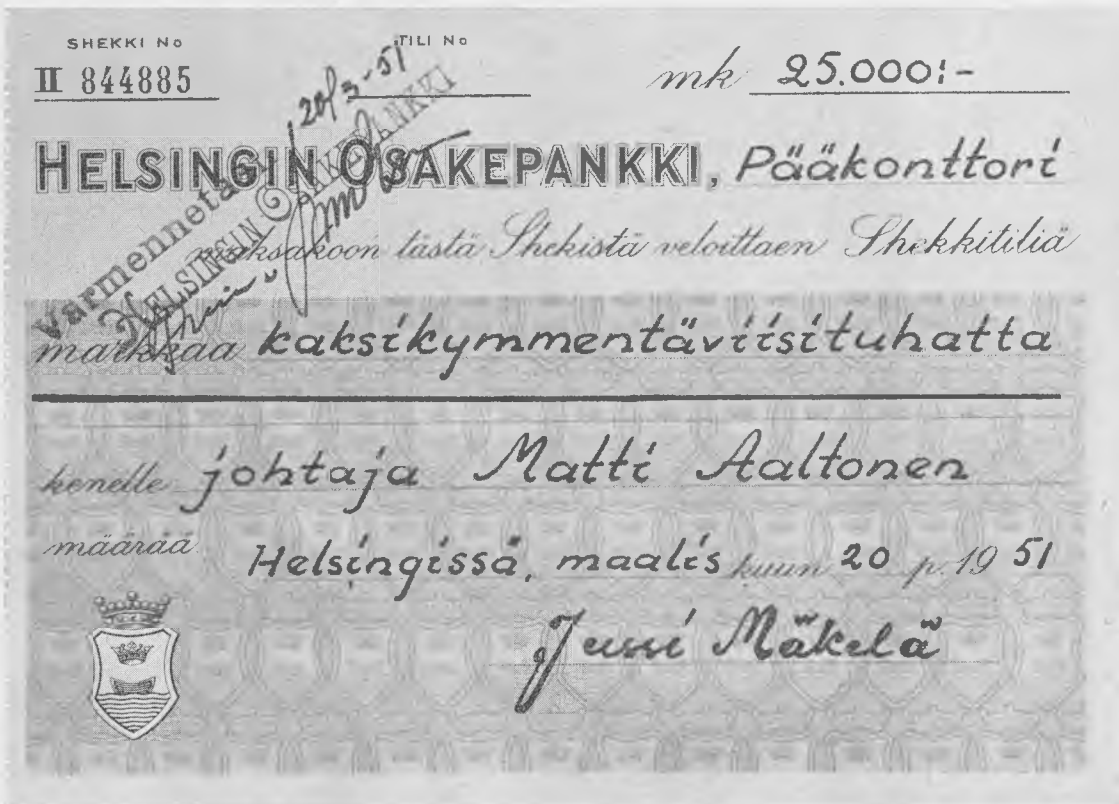 SHEKKI No
TILI No
II 844885
mk 25.000:-
Varmennetaan 20/3-51
HELSINGIN OSAKEPANKKI
HELSINGIN OSAKEPANKKI, Pääkonttori
maksakoon tästä Shekistä veloittaen Shekkitiliä
markkaa kaksikymmentäviisituhatta
kenelle johtaja Matti Aaltonen
määrää
Helsingissä, maalis kuun 20 p. 1951
Jussi Mäkelä